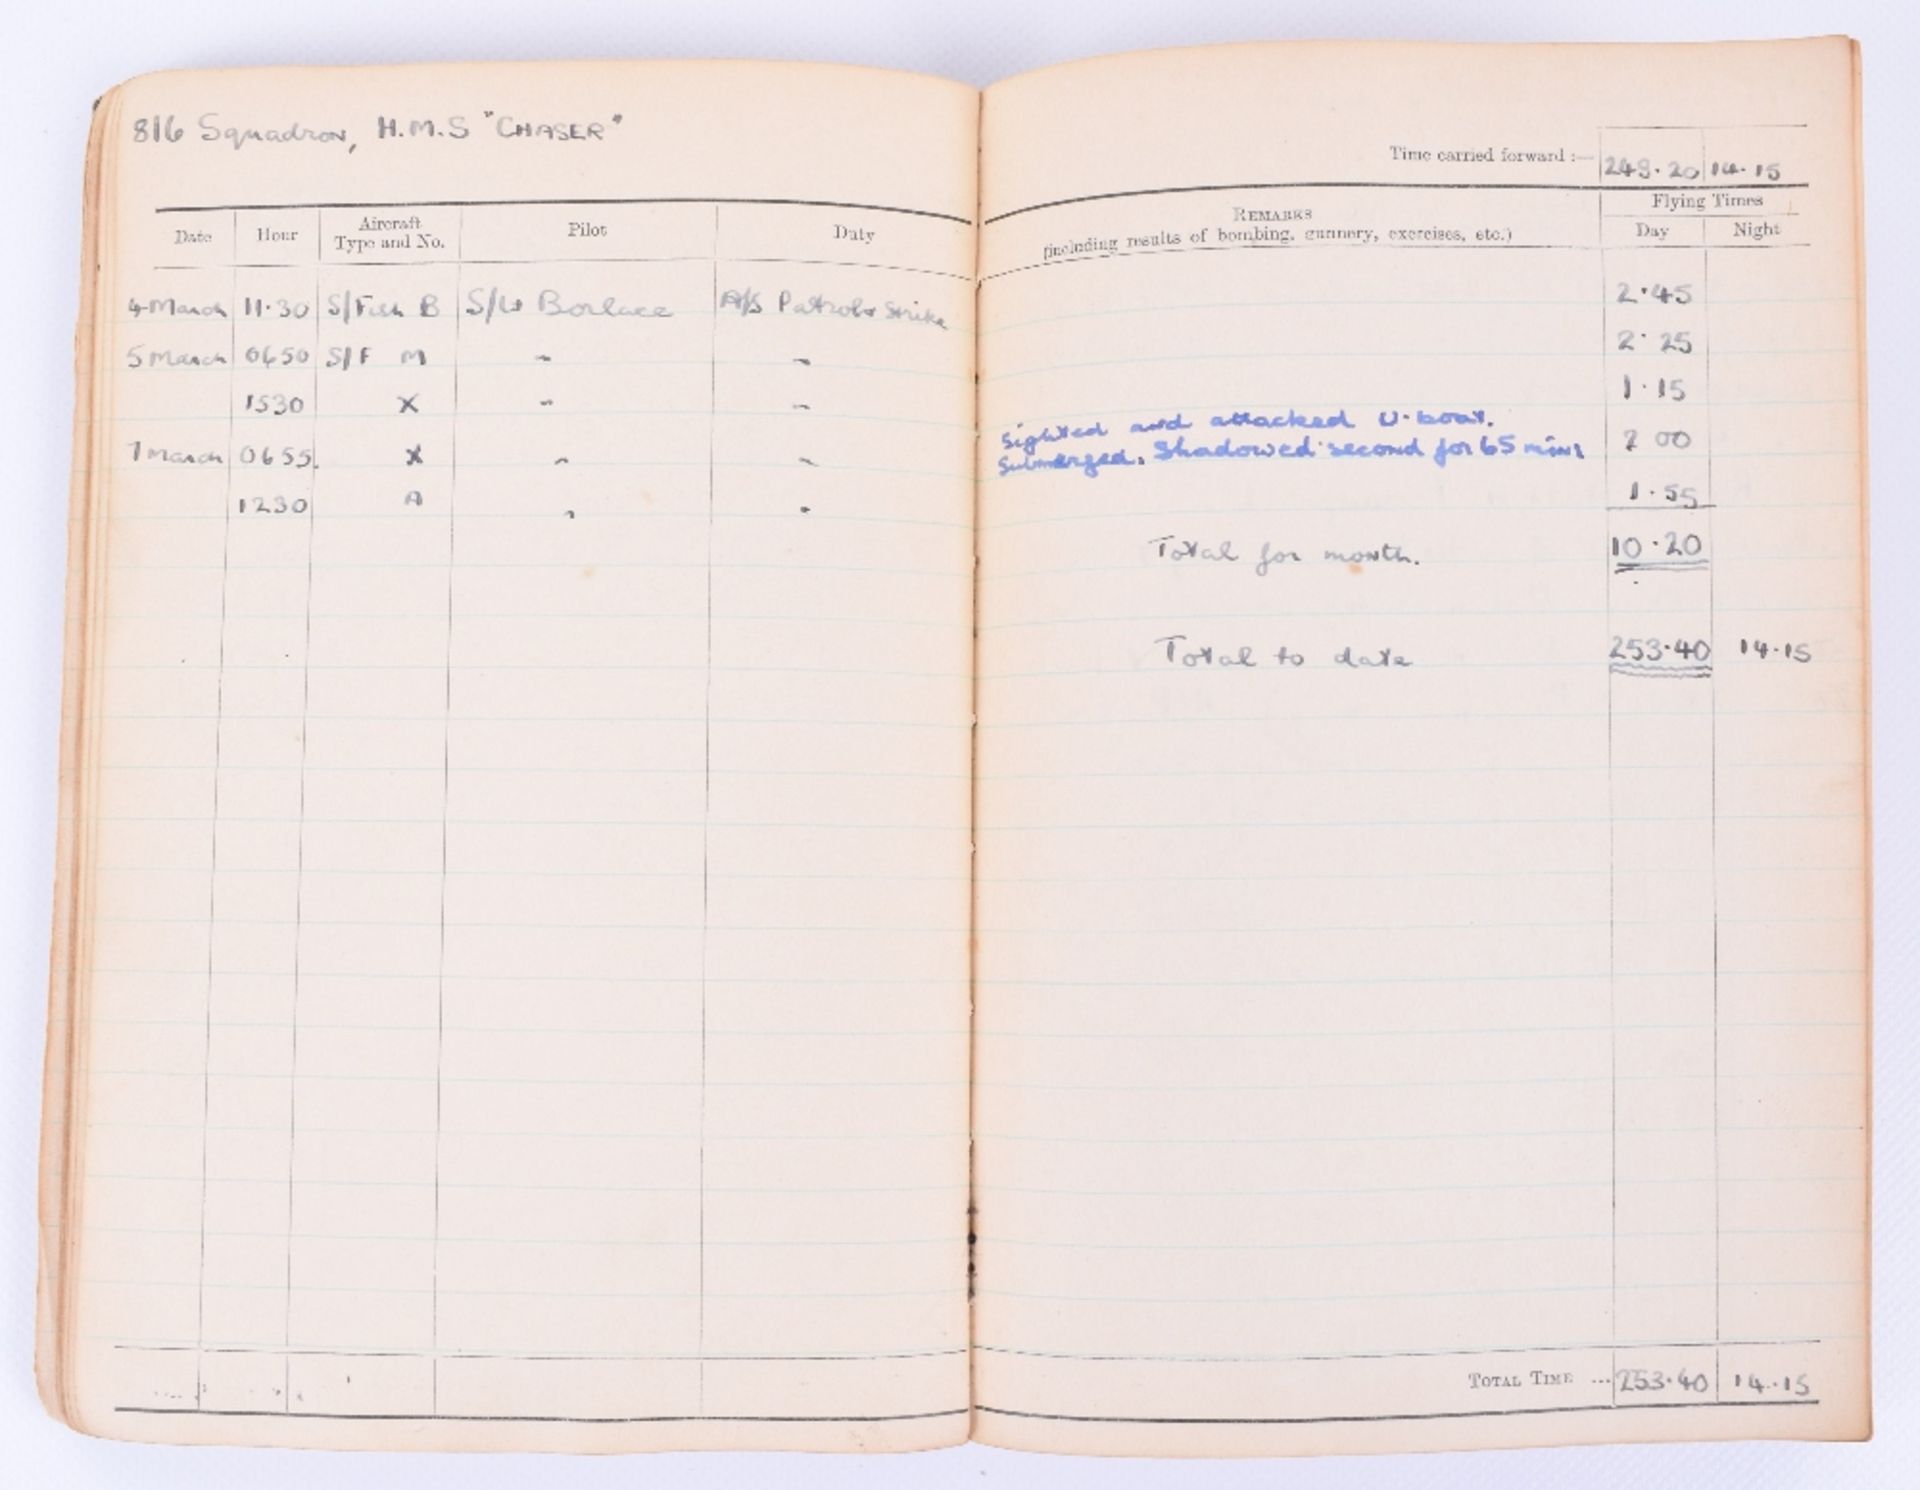 816 Squadron, H.M.S "CHASER"
Time carried forward :— 243·20 14·15
Date Hour Aircraft Type and No. Pilot Duty REMARKS (including results of bombing, gunnery, exercises, etc.) Flying Times Day Night
4 March 11·30 S/Fish B S/Lt Borlace A/S Patrol & Strike 2·45
5 March 0650 S/F M " " 2·25
1530 X " " 1·15
7 March 0655 X " " Sighted and attacked U-boat. Submerged. Shadowed second for 65 mins 2 00
1230 A " " 1·55
Total for month. 10·20
Total to date 253·40 14·15
TOTAL TIME ... 253·40 14·15